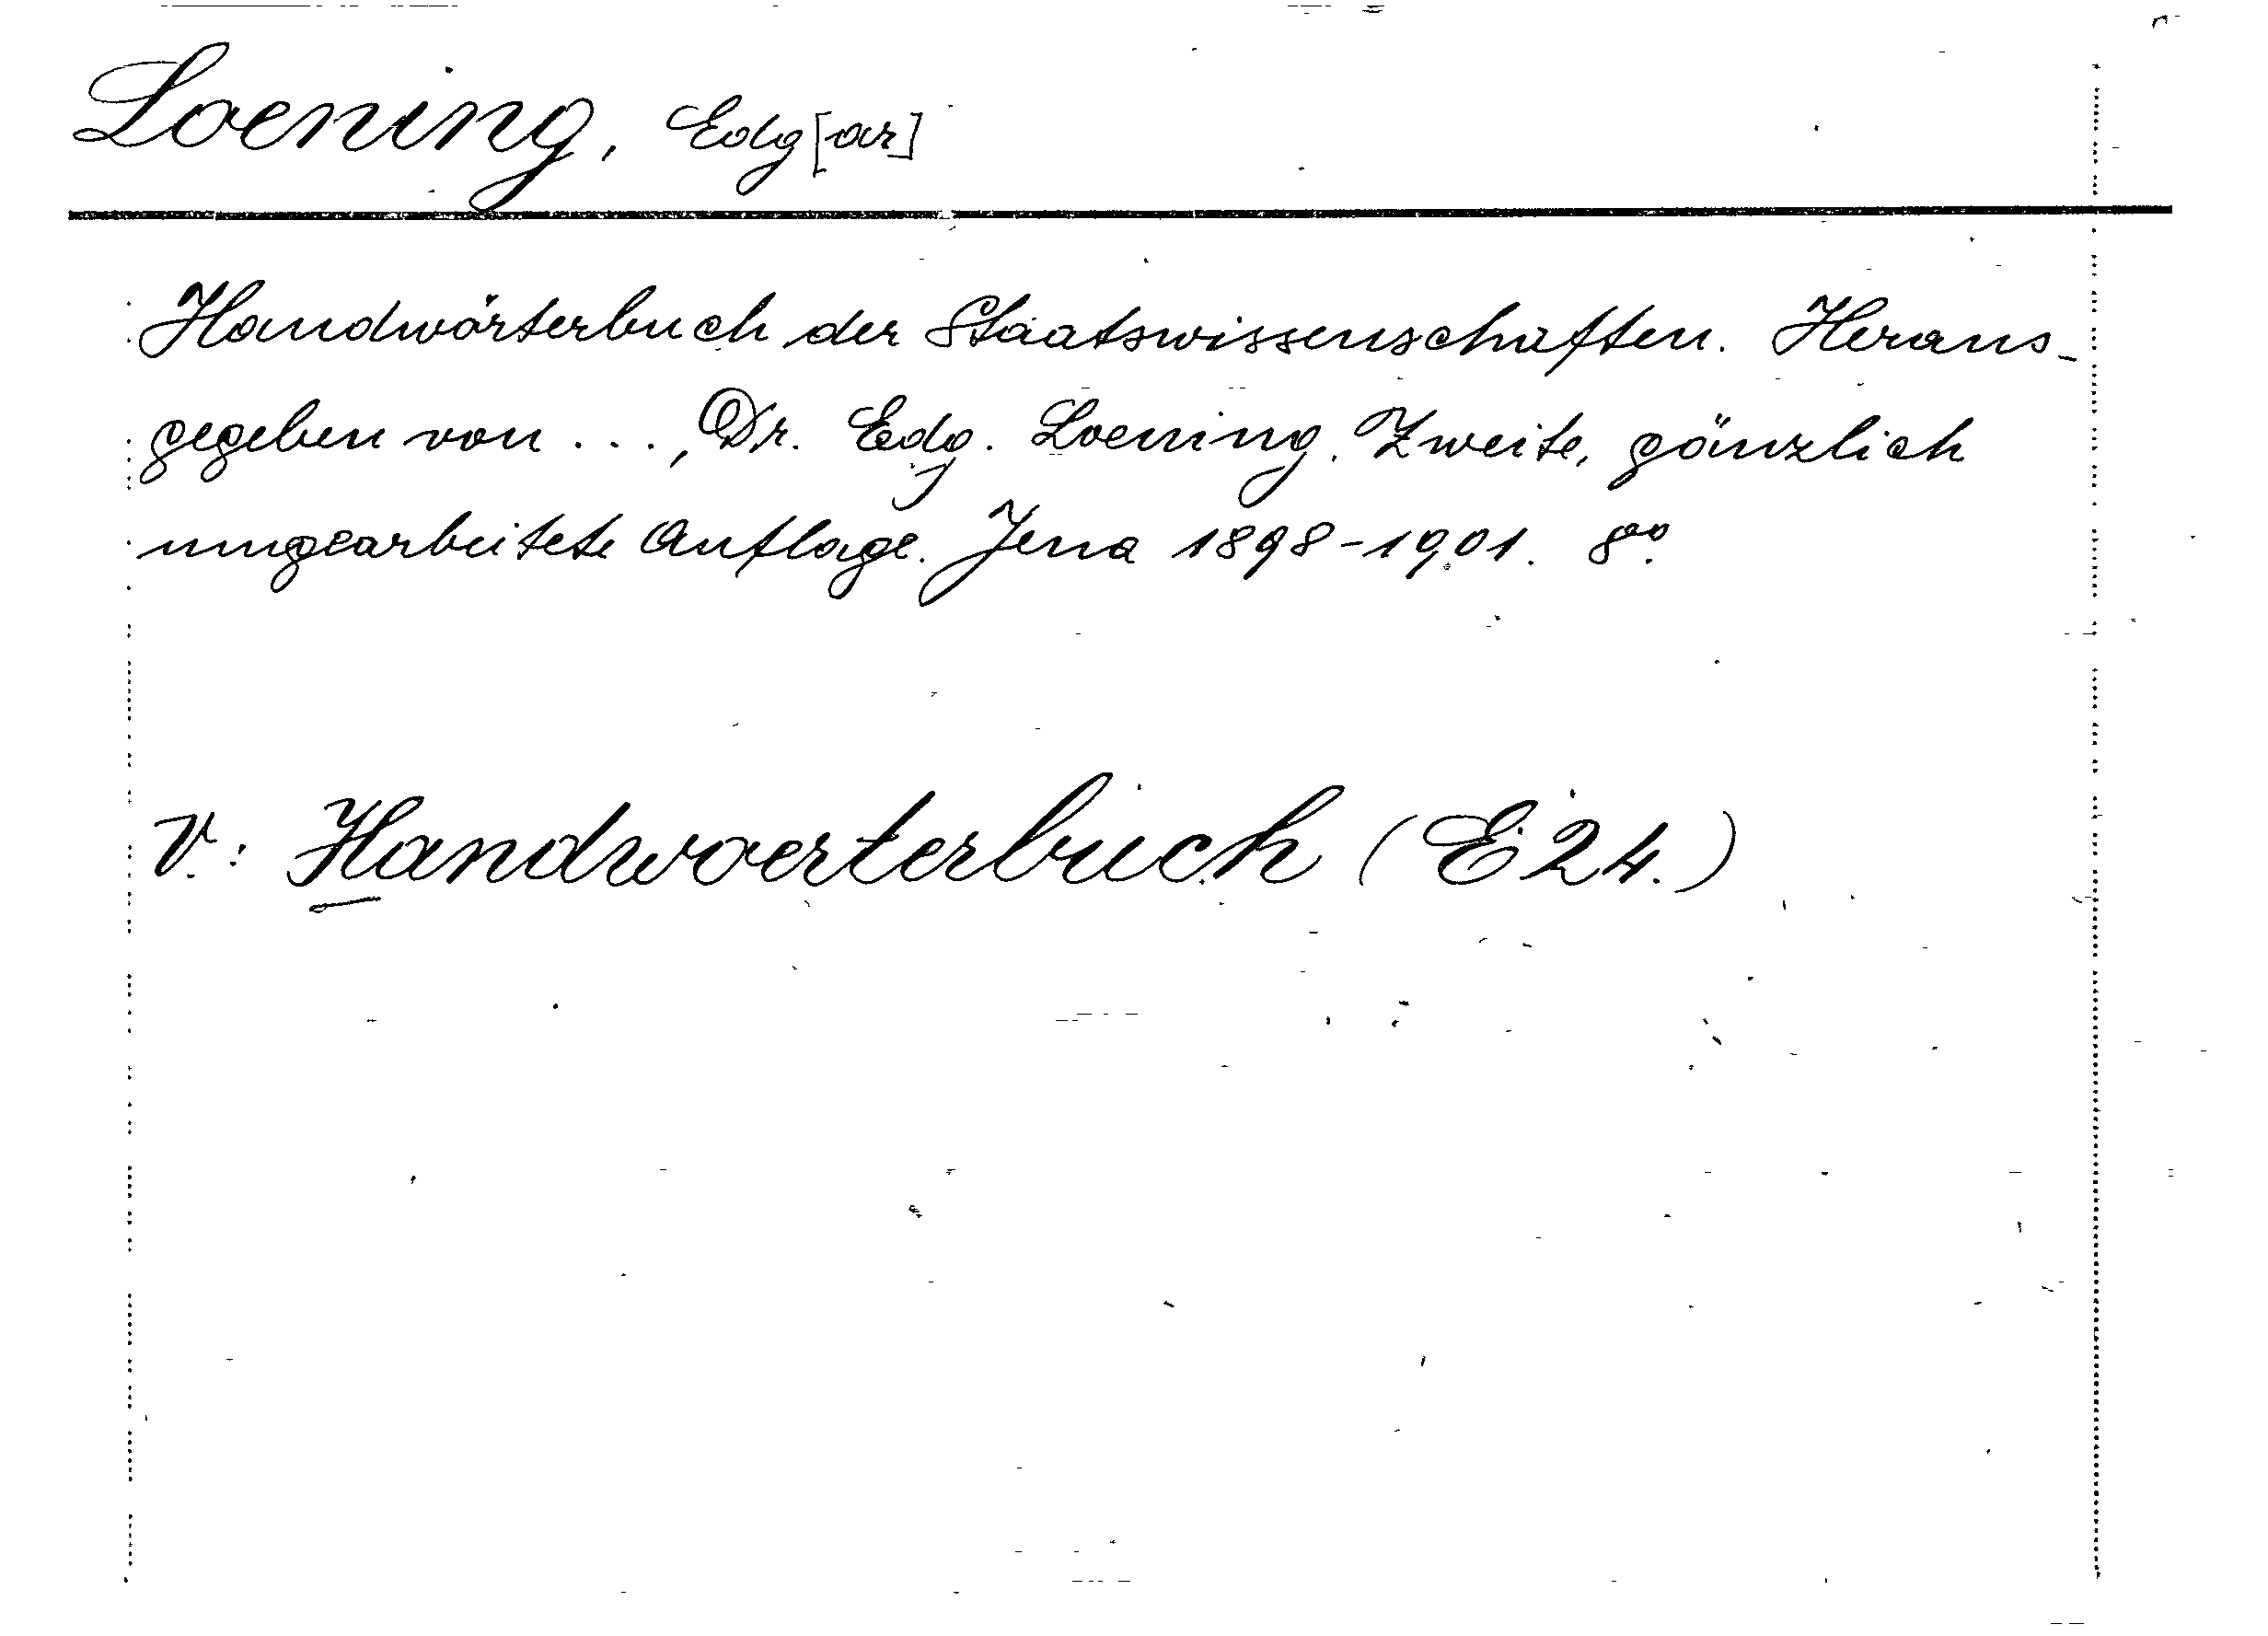 Loening, Edg[ar]
Handwörterbuch der Staatswissenschaften. Heraus-
gegeben von . . . , Dr. Edg. Loening. Zweite, gänzlich
umgearbeitete Auflage. Jena 1898-1901. 8º.
V.: Handwoerterbuch (E 24.)